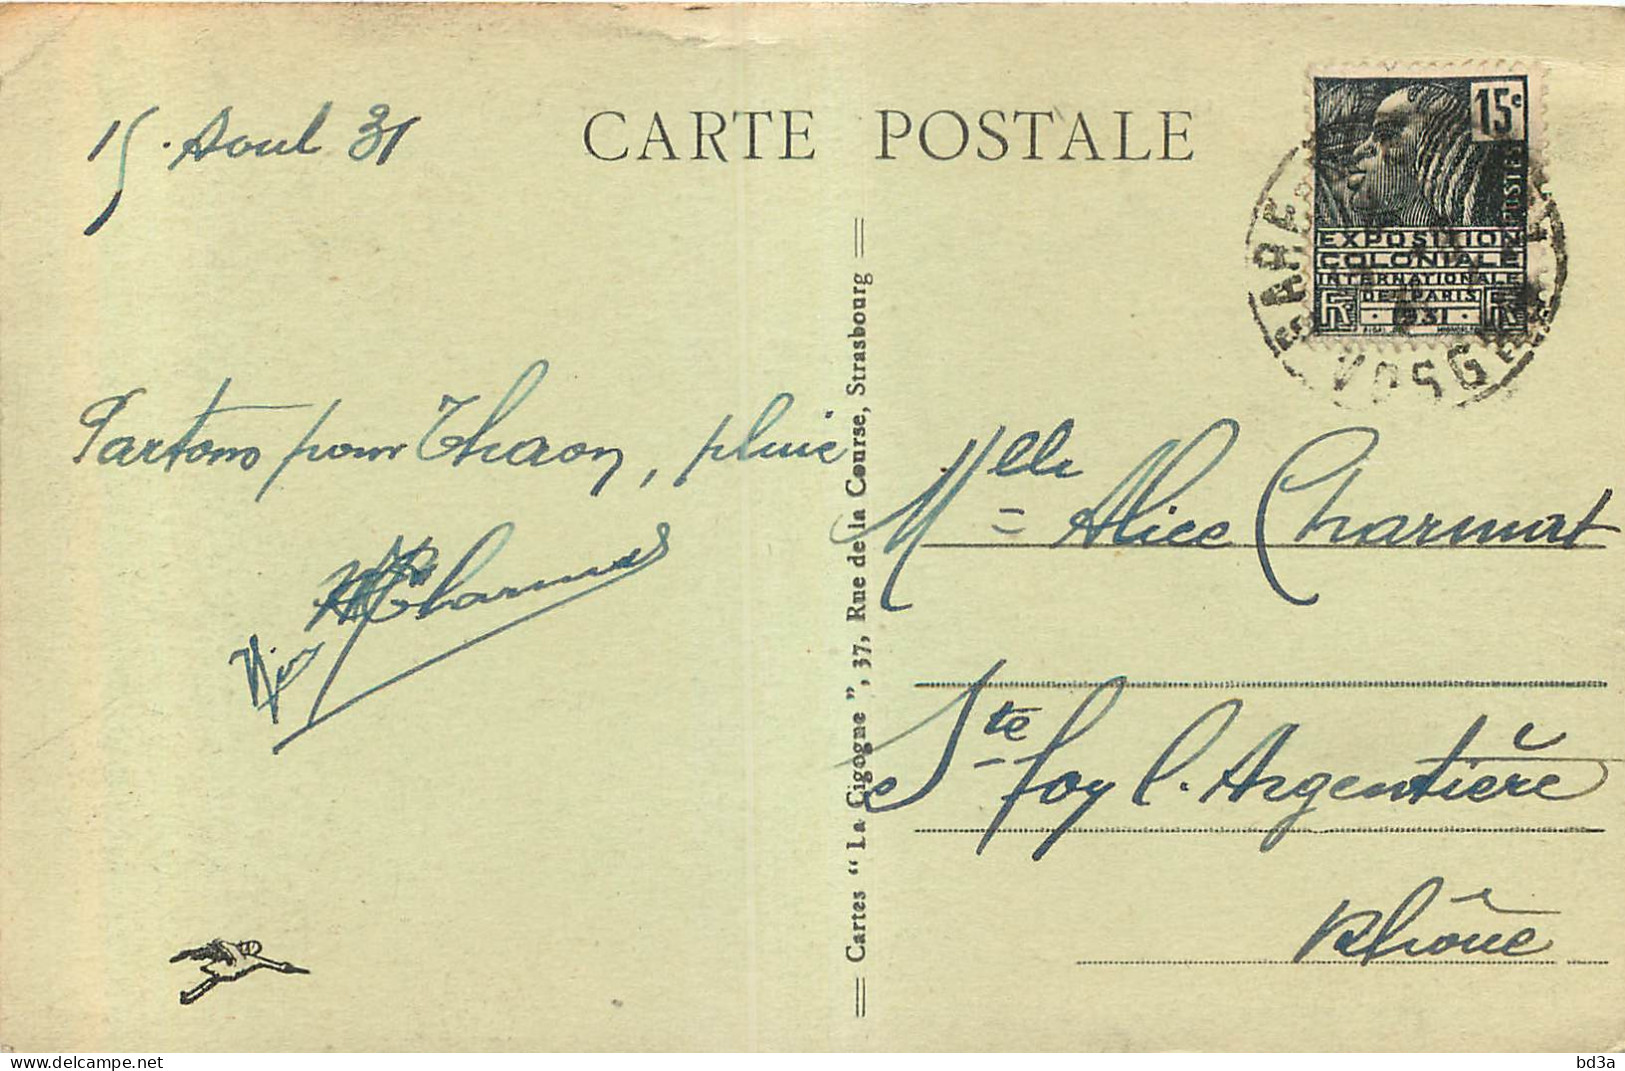 CARTE POSTALE
15 Aout 31
15c
POSTES
EXPOSITION
COLONIALE
INTERNATIONALE
DE PARIS
1931
VOSGES
Partons pour Thaon, pluie
Cartes “ La Cigogne ”, 37, Rue de la Course, Strasbourg
Mlle Alice Charmat
Ste Foy l'Argentière
Rhône
bd3a